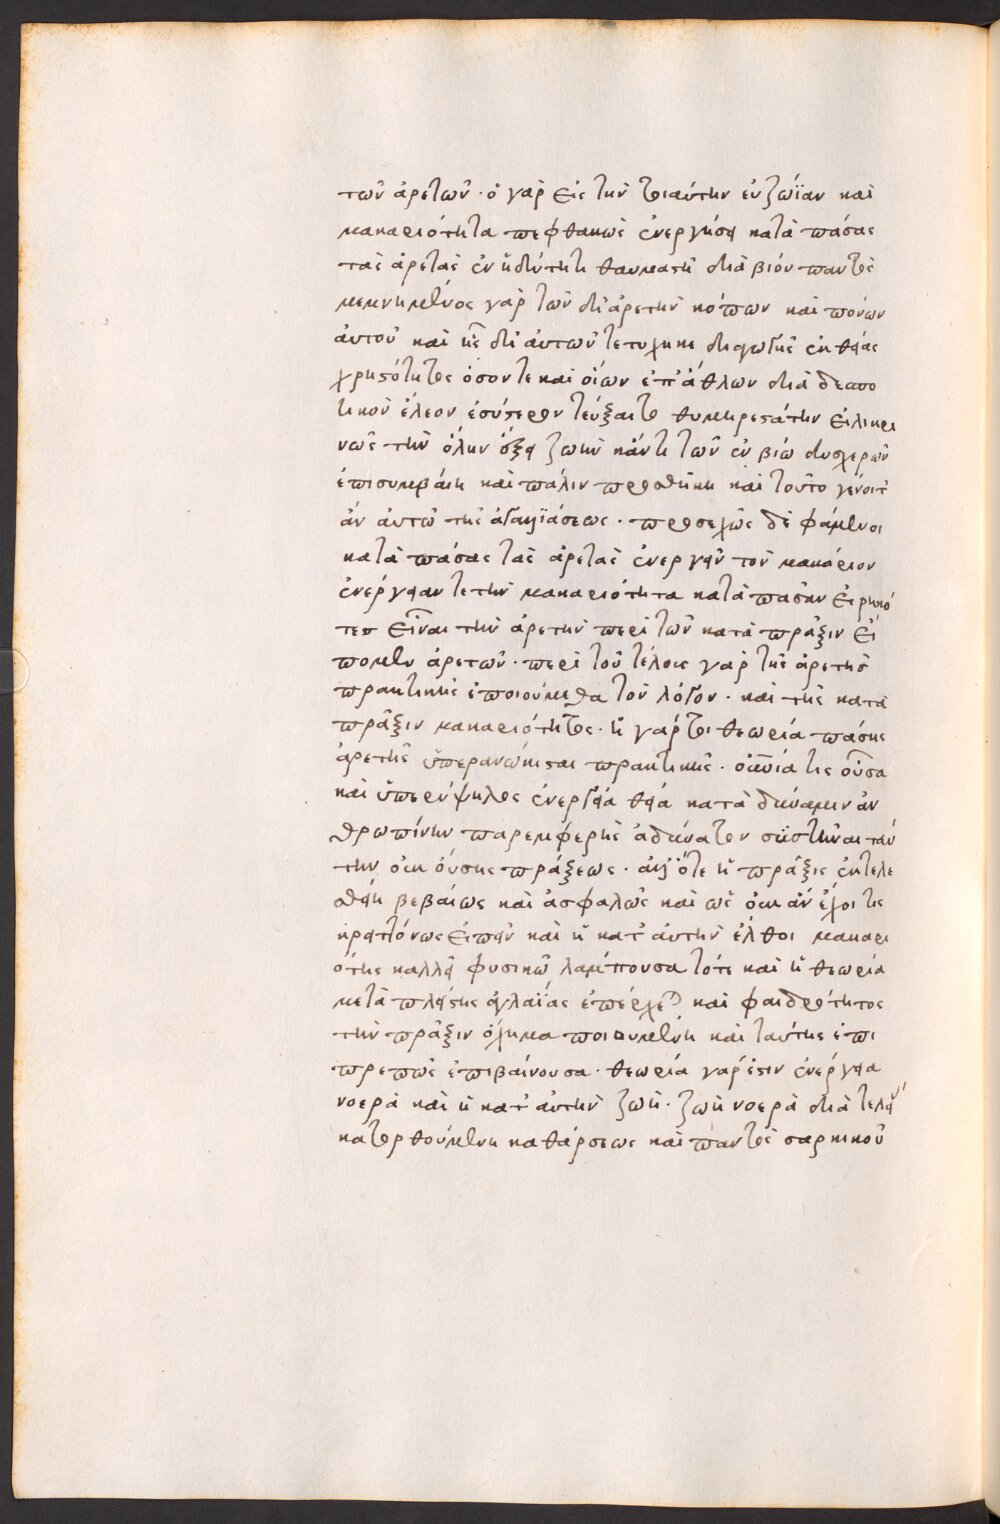 τῶν ἀρετῶν · ὁ γὰρ εἰς τὴν τοιαύτην εὐζωΐαν καὶ
μακαριότητα πεφθακὼς ἐνεργήσει κατὰ πάσας
τὰς ἀρετὰς ἐν ἡδύτητι θαυμαστῆ διὰ βίου παντὸς
μεμνημένος γὰρ τῶν δι' ἀρετὴν κόπων καὶ πόνων
αὐτοῦ καὶ ἧς δι' αὐτῶν τετύχηκε θείας
χρηστότητος ὅσον τε καὶ οἵων ἐπάθλων διὰ δεσπο
τικὸν ἔλεον ἐσύστερον τεύξαιτο θυμηρεστάτην εἰλικρι
νῶς τὴν ὅλην ἕξει ζωὴν κἄν τι τῶν ἐν βίω δυσχερῶν
ἐπισυμβαίη καὶ πάλιν προσθήκη καὶ τοῦτο γένοιτ'
ἂν αὐτῶ τῆς ἀγαλλιάσεως · προσεχῶς δὲ φάμενοι
κατὰ πάσας τὰς ἀρετὰς ἐνεργεῖν τὸν μακάριον
ἐνέργειαν τε τὴν μακαριότητα κατὰ πᾶσαν εἰρηκό
τες εἶναι τὴν ἀρετὴν περὶ τῶν κατὰ πρᾶξιν εἴ
πομεν ἀρετῶν · περὶ τοῦ τέλους γὰρ τῆς ἀρετῆς
πρακτικῆς ἐποιούμεθα τὸν λόγον · καὶ τῆς κατὰ
πρᾶξιν μακαριότητος · ἡ γάρ τοι θεωρία πάσης
ἀρετῆς ὑπερανώκισται πρακτικῆς · οὐσία τις οὖσα
καὶ ὑπερύψηλος ἐνέργεια θεία κατὰ δύναμιν ἀν
θρωπίνην παρεμφερὴς ἀδύνατον συστῆναι ταύ
την οὐκ οὔσης πράξεως · ἀλλ' ὅτε ἡ πρᾶξις ἐκτελε
σθείη βεβαίως καὶ ἀσφαλῶς καὶ ὡς οὐκ ἂν ἔχοι τις
κρειττόνως εἰπεῖν καὶ ἡ κατ' αὐτὴν ἔλθοι μακαρι
ότης κάλλει φυσικῶ λάμπουσα τότε καὶ ἡ θεωρία
μετὰ πλείστης ἀγλαΐας ἐπέρχεται καὶ φαιδρότητος
τὴν πρᾶξιν ὄχημα ποιουμένη καὶ ταύτης ἐπι
πρεπῶς ἐπιβαίνουσα · θεωρία γάρ ἐστιν ἐνέργεια
νοερὰ καὶ ἡ κατ' αὐτὴν ζωὴ · ζωὴ νοερὰ διὰ τελεί
κατορθουμένη καθάρσεως καὶ παντὸς σαρκικοῦ